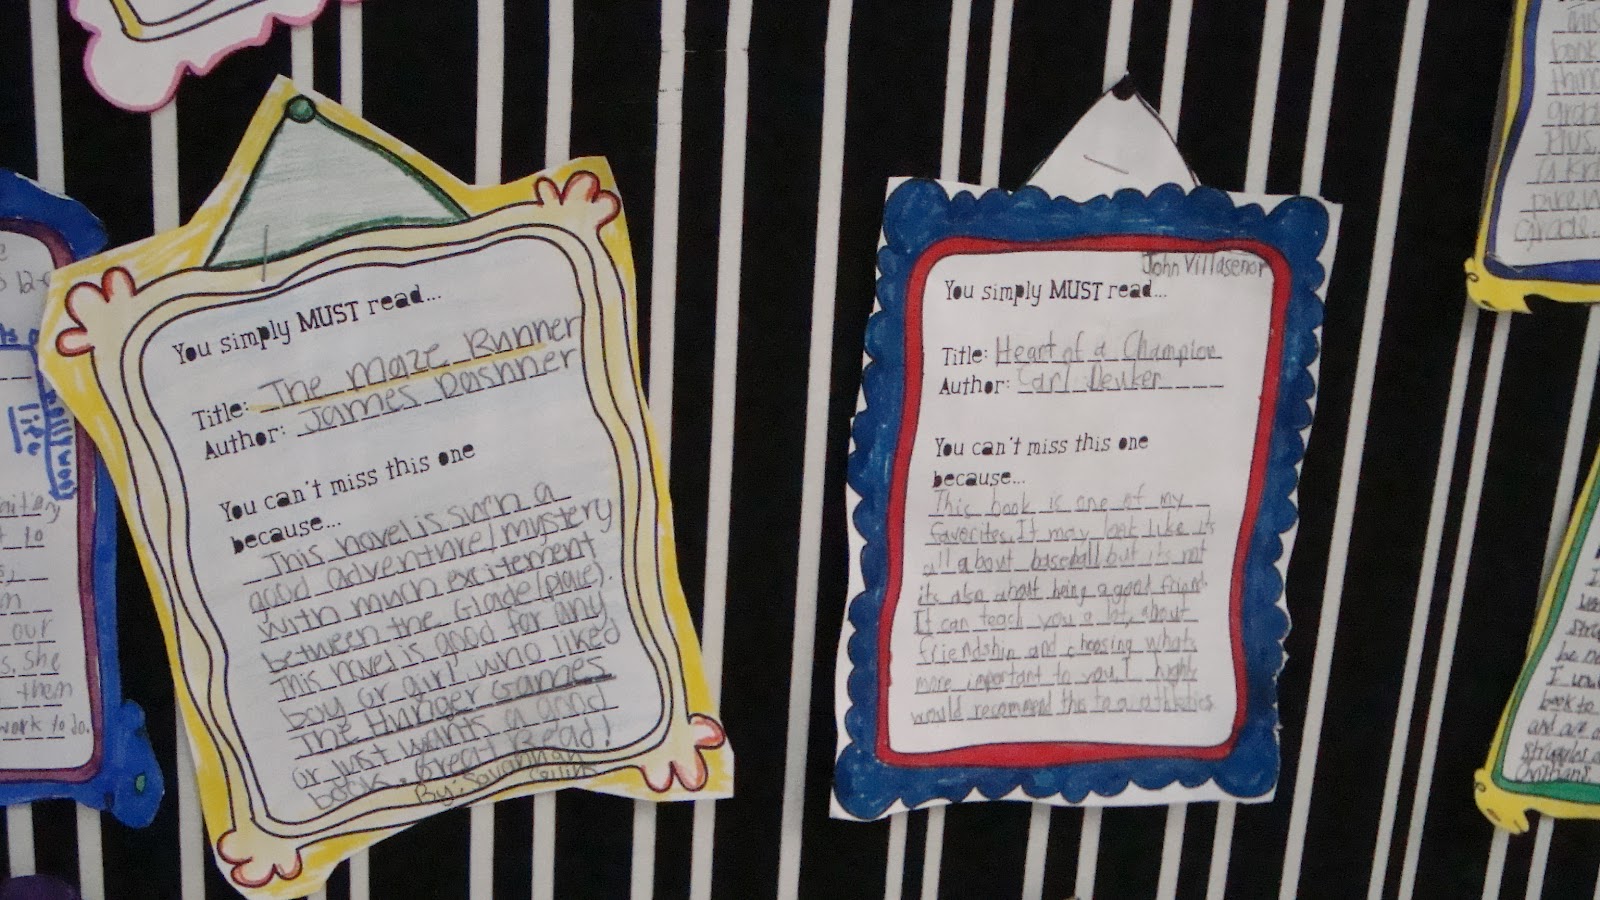 You simply MUST read...
Title: The Maze Runner
Author: James Dashner
You can't miss this one
because...
This novel is such a
good adventure/mystery
with much excitement
between the Glade(place).
This novel is good for any
boy or girl who liked
The Hunger Games
or just wants a good
book. Great Read!
By: Savannah
John Villasenor
You simply MUST read...
Title: Heart of a Champion
Author: Carl Deuker
You can't miss this one
because...
This book is one of my
favorites. It may look like its
all about baseball but its not
its also about being a good friend.
It can teach you a lot, about
friendship and choosing whats
more important to you. I highly
would recommend this to a athletics
our
she
them
work to do.
hollywood
like
book
grade.
I
be
I
book to
and
struggles